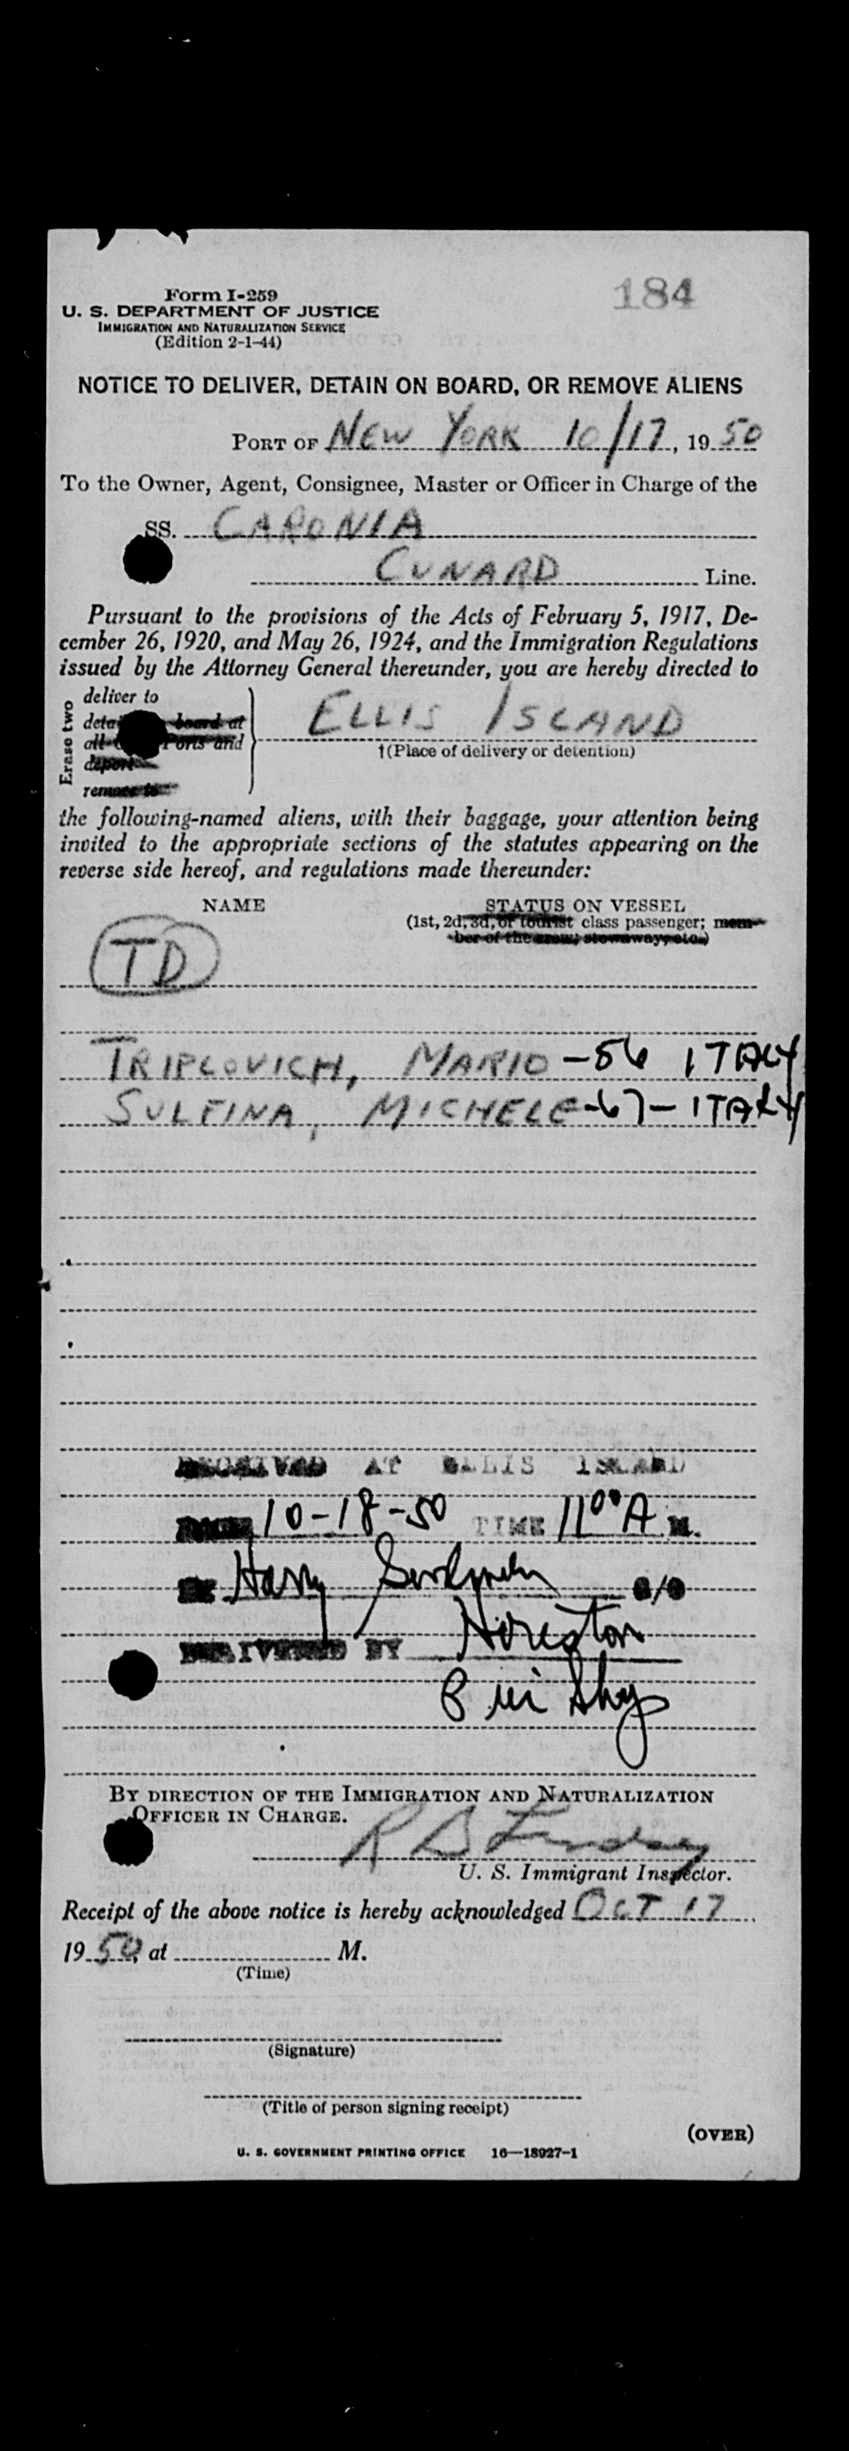 Form I-259
184
U. S. DEPARTMENT OF JUSTICE
IMMIGRATION AND NATURALIZATION SERVICE
(Edition 2-1-44)
NOTICE TO DELIVER, DETAIN ON BOARD, OR REMOVE ALIENS
PORT OF NEW YORK 10/17, 1950
To the Owner, Agent, Consignee, Master or Officer in Charge of the
SS. CARONIA
CUNARD Line.
Pursuant to the provisions of the Acts of February 5, 1917, De-
cember 26, 1920, and May 26, 1924, and the Immigration Regulations
issued by the Attorney General thereunder, you are hereby directed to
Erase two
deliver to
board at
Ports and
deport
remove to
ELLIS ISLAND
†(Place of delivery or detention)
the following-named aliens, with their baggage, your attention being
invited to the appropriate sections of the statutes appearing on the
reverse side hereof, and regulations made thereunder:
NAME STATUS ON VESSEL
(1st, 2d, 3d, or tourist class passenger; mem-
ber of the crew; stowaway, etc.)
TD
TRIPLOVICH, MARIO - 56 ITALY
SULFINA, MICHELE - 67 - ITALY
RECEIVED AT ELLIS ISLAND
10-18-50 TIME 11 00 A M.
Harry
DELIVERED BY
BY DIRECTION OF THE IMMIGRATION AND NATURALIZATION
OFFICER IN CHARGE.
U. S. Immigrant Inspector.
Receipt of the above notice is hereby acknowledged OCT 17
1950, at M.
(Time)
(Signature)
(Title of person signing receipt)
(OVER)
U. S. GOVERNMENT PRINTING OFFICE 16—18927-1